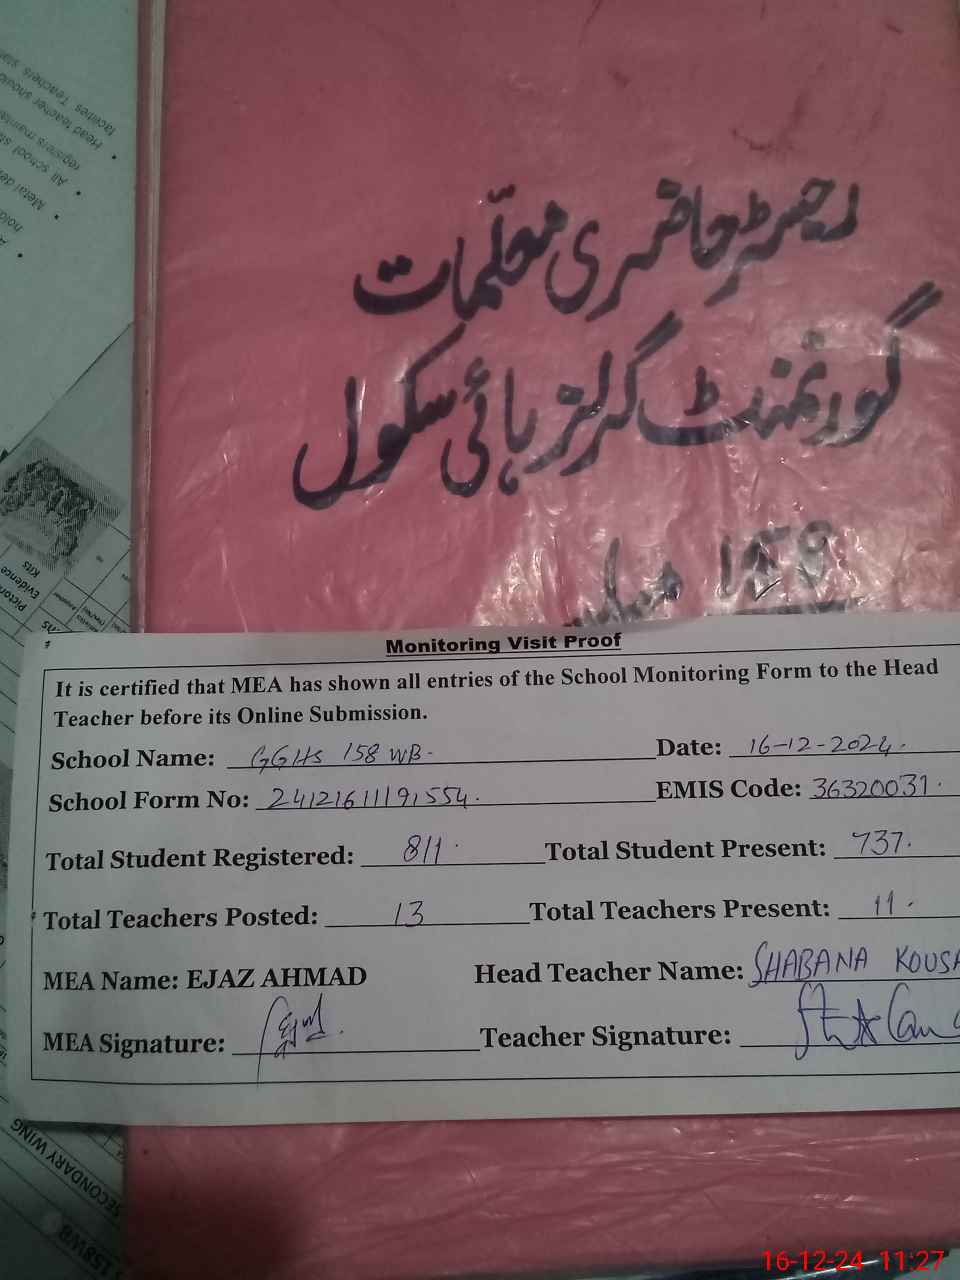 رجسٹر حاضری معلّمات
گورنمنٹ گرلز ہائی سکول
158
Monitoring Visit Proof
It is certified that MEA has shown all entries of the School Monitoring Form to the Head
Teacher before its Online Submission.
School Name: GGHS 158 WB. Date: 16-12-2024.
School Form No: 24121611191554. EMIS Code: 36320031.
Total Student Registered: 811. Total Student Present: 737.
Total Teachers Posted: 13 Total Teachers Present: 11.
MEA Name: EJAZ AHMAD Head Teacher Name: SHABANA KOUSA
MEA Signature: Teacher Signature:
facilities. Teachers
Head teacher
registers
All school
Metal
Kits
Evidence
SECONDARY WING
158WB
16-12-24 11:27